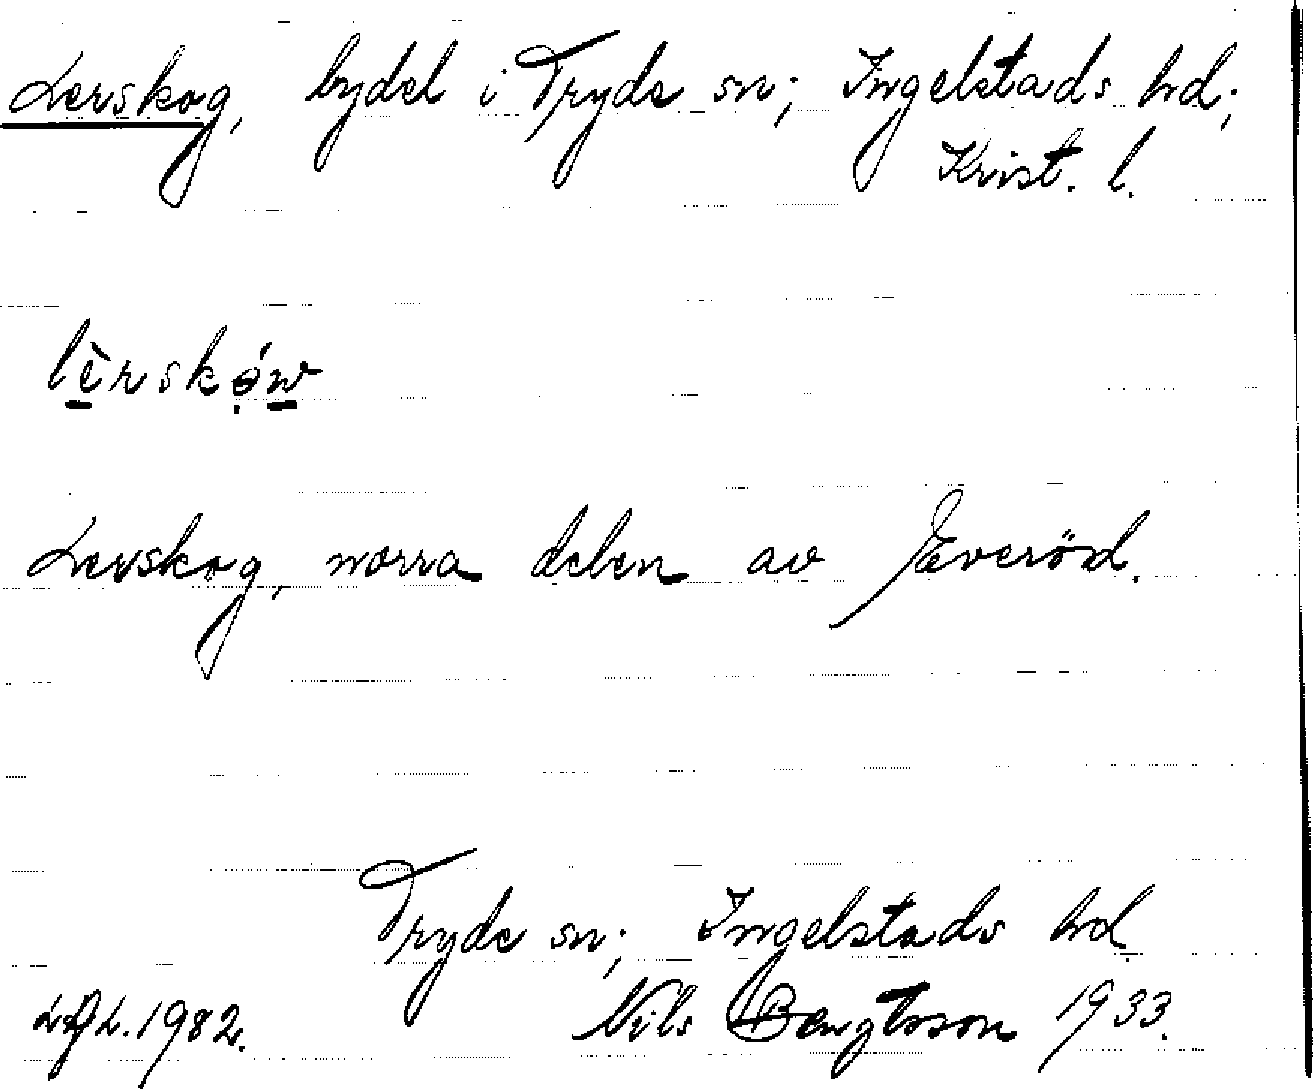 Lerskog, bydel i Tryde sn; Ingelstads hd;
Krist. l.
lèrskǫ́w
Lerskog, norra delen av Everöd.
Tryde sn; Ingelstads hd
1982. Nils Bengtsson 1933.